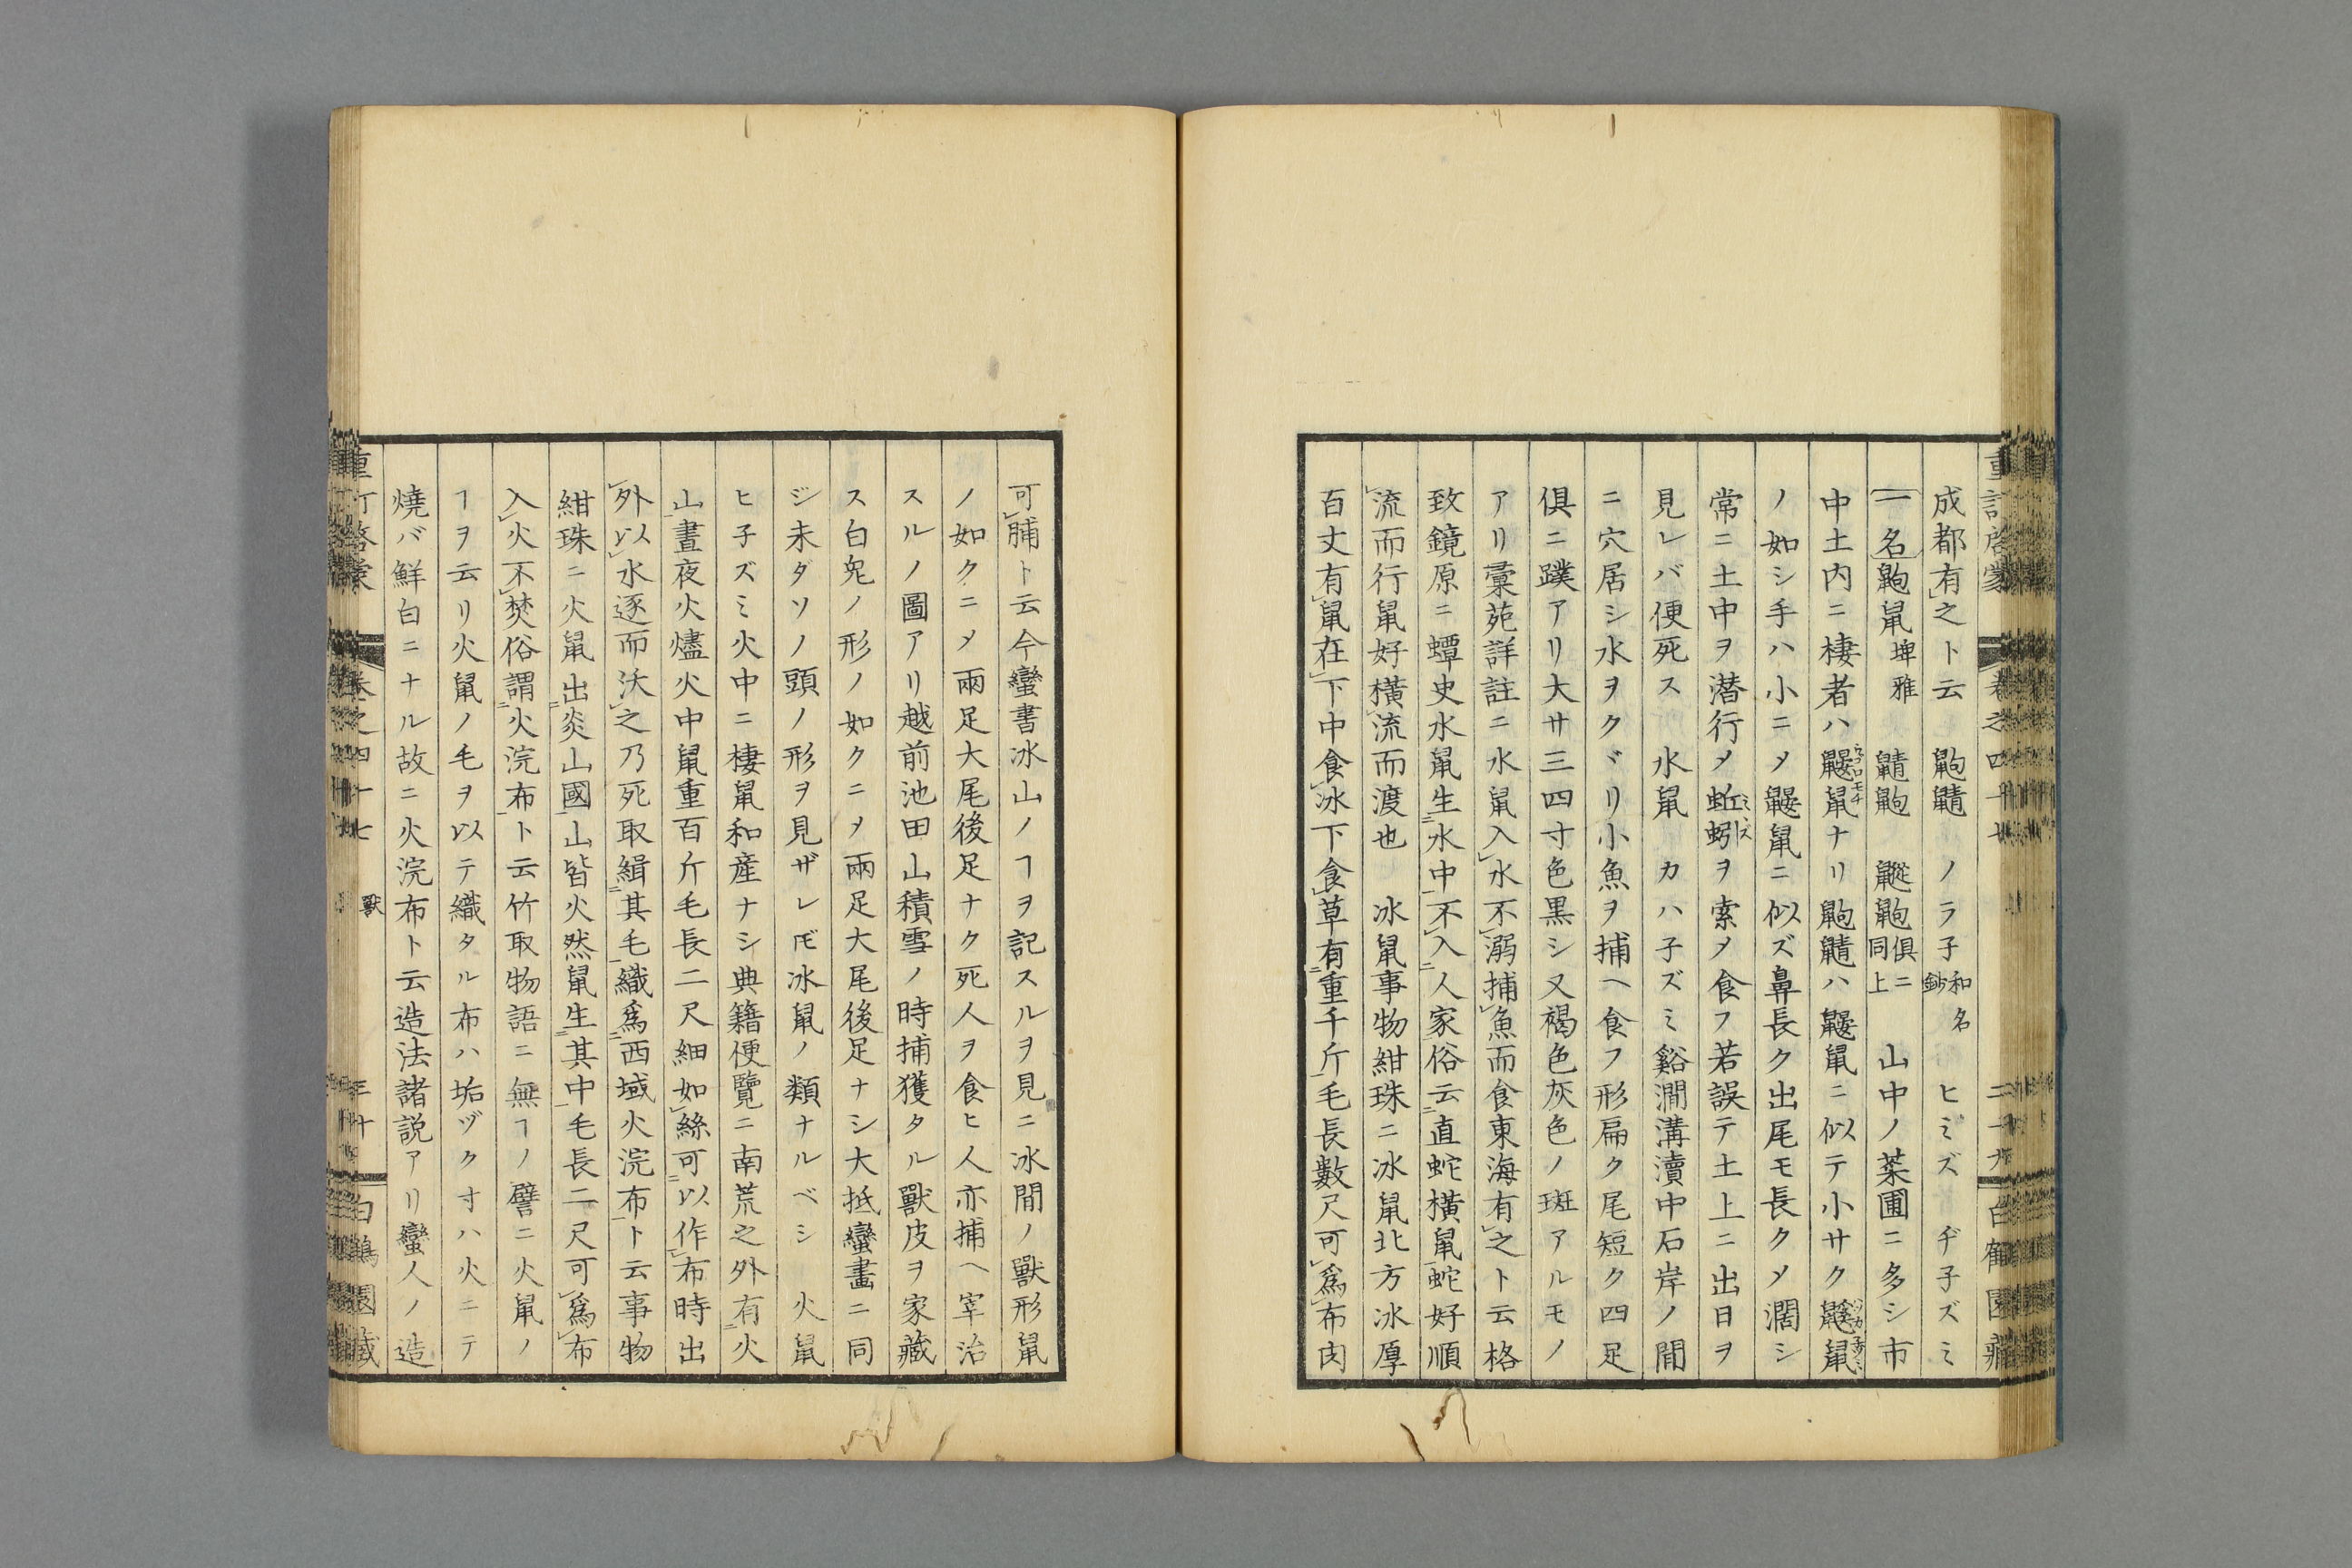 成都有之ト云　鼩鼱　ノラ子和名鈔　ヒミズ　ヂ子ズミ
一名鼩鼠埤雅　鼱鼩　鼨鼩俱ニ同上　山中ノ菜圃ニ多シ市
中土内ニ棲者ハ鼴鼠ナリ鼩鼱ハ鼴鼠ニ似テ小サク鼷鼠
ノ如シ手ハ小ニメ鼴鼠ニ似ズ鼻長ク出尾モ長クメ濶シ
常ニ土中ヲ潜行メ蚯蚓ヲ索メ食フ若誤テ土上ニ出日ヲ
見レバ便死ス　水鼠　カハ子ズミ谿澗溝瀆中石岸ノ間
ニ穴居シ水ヲクヾリ小魚ヲ捕ヘ食フ形扁ク尾短ク四足
俱ニ蹼アリ大サ三四寸色黒シ又褐色灰色ノ斑アルモノ
アリ彙苑詳註ニ水鼠入水不溺捕魚而食東海有之ト云格
致鏡原ニ蟫史水鼠生水中不入人家俗云直蛇横鼠蛇好順
流而行鼠好横流而渡也　冰鼠事物紺珠ニ冰鼠北方冰厚
百丈有鼠在下中食冰下食草有重千斤毛長數尺可爲布肉
可脯ト云今蠻書冰山ノヿヲ記スルヲ見ニ冰間ノ獸形鼠
ノ如クニメ兩足大尾後足ナク死人ヲ食ヒ人亦捕ヘ宰治
スルノ圖アリ越前池田山積雪ノ時捕獲タル獸皮ヲ家藏
ス白兎ノ形ノ如クニメ兩足大尾後足ナシ大抵蠻畫ニ同
ジ未ダソノ頭ノ形ヲ見ザレ𪜈冰鼠ノ類ナルベシ　火鼠
ヒ子ズミ火中ニ棲鼠和産ナシ典籍便覽ニ南荒之外有火
山晝夜火燼火中鼠重百斤毛長二尺細如絲可以作布時出
外以水逐而沃之乃死取緝其毛織爲西域火浣布ト云事物
紺珠ニ火鼠出炎山國山皆火然鼠生其中毛長二尺可爲布
入火不焚俗謂火浣布ト云竹取物語ニ無ヿノ譬ニ火鼠ノ
ヿヲ云リ火鼠ノ毛ヲ以テ織タル布ハ垢ヅク寸ハ火ニテ
燒バ鮮白ニナル故ニ火浣布ト云造法諸説アリ蠻人ノ造